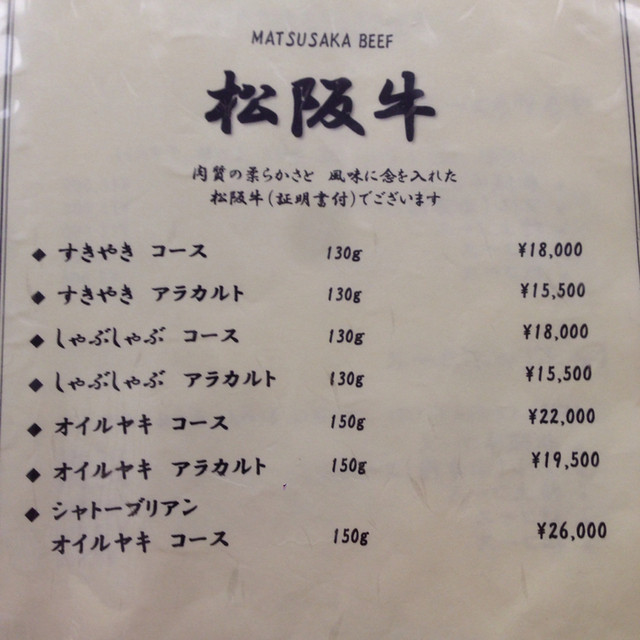 MATSUSAKA BEEF
松阪牛
肉質の柔らかさと 風味に念を入れた
松阪牛(証明書付)でございます
◆ すきやき コース 130g ¥18,000
◆ すきやき アラカルト 130g ¥15,500
◆ しゃぶしゃぶ コース 130g ¥18,000
◆ しゃぶしゃぶ アラカルト 130g ¥15,500
◆ オイルヤキ コース 150g ¥22,000
◆ オイルヤキ アラカルト 150g ¥19,500
◆ シャトーブリアン
オイルヤキ コース 150g ¥26,000